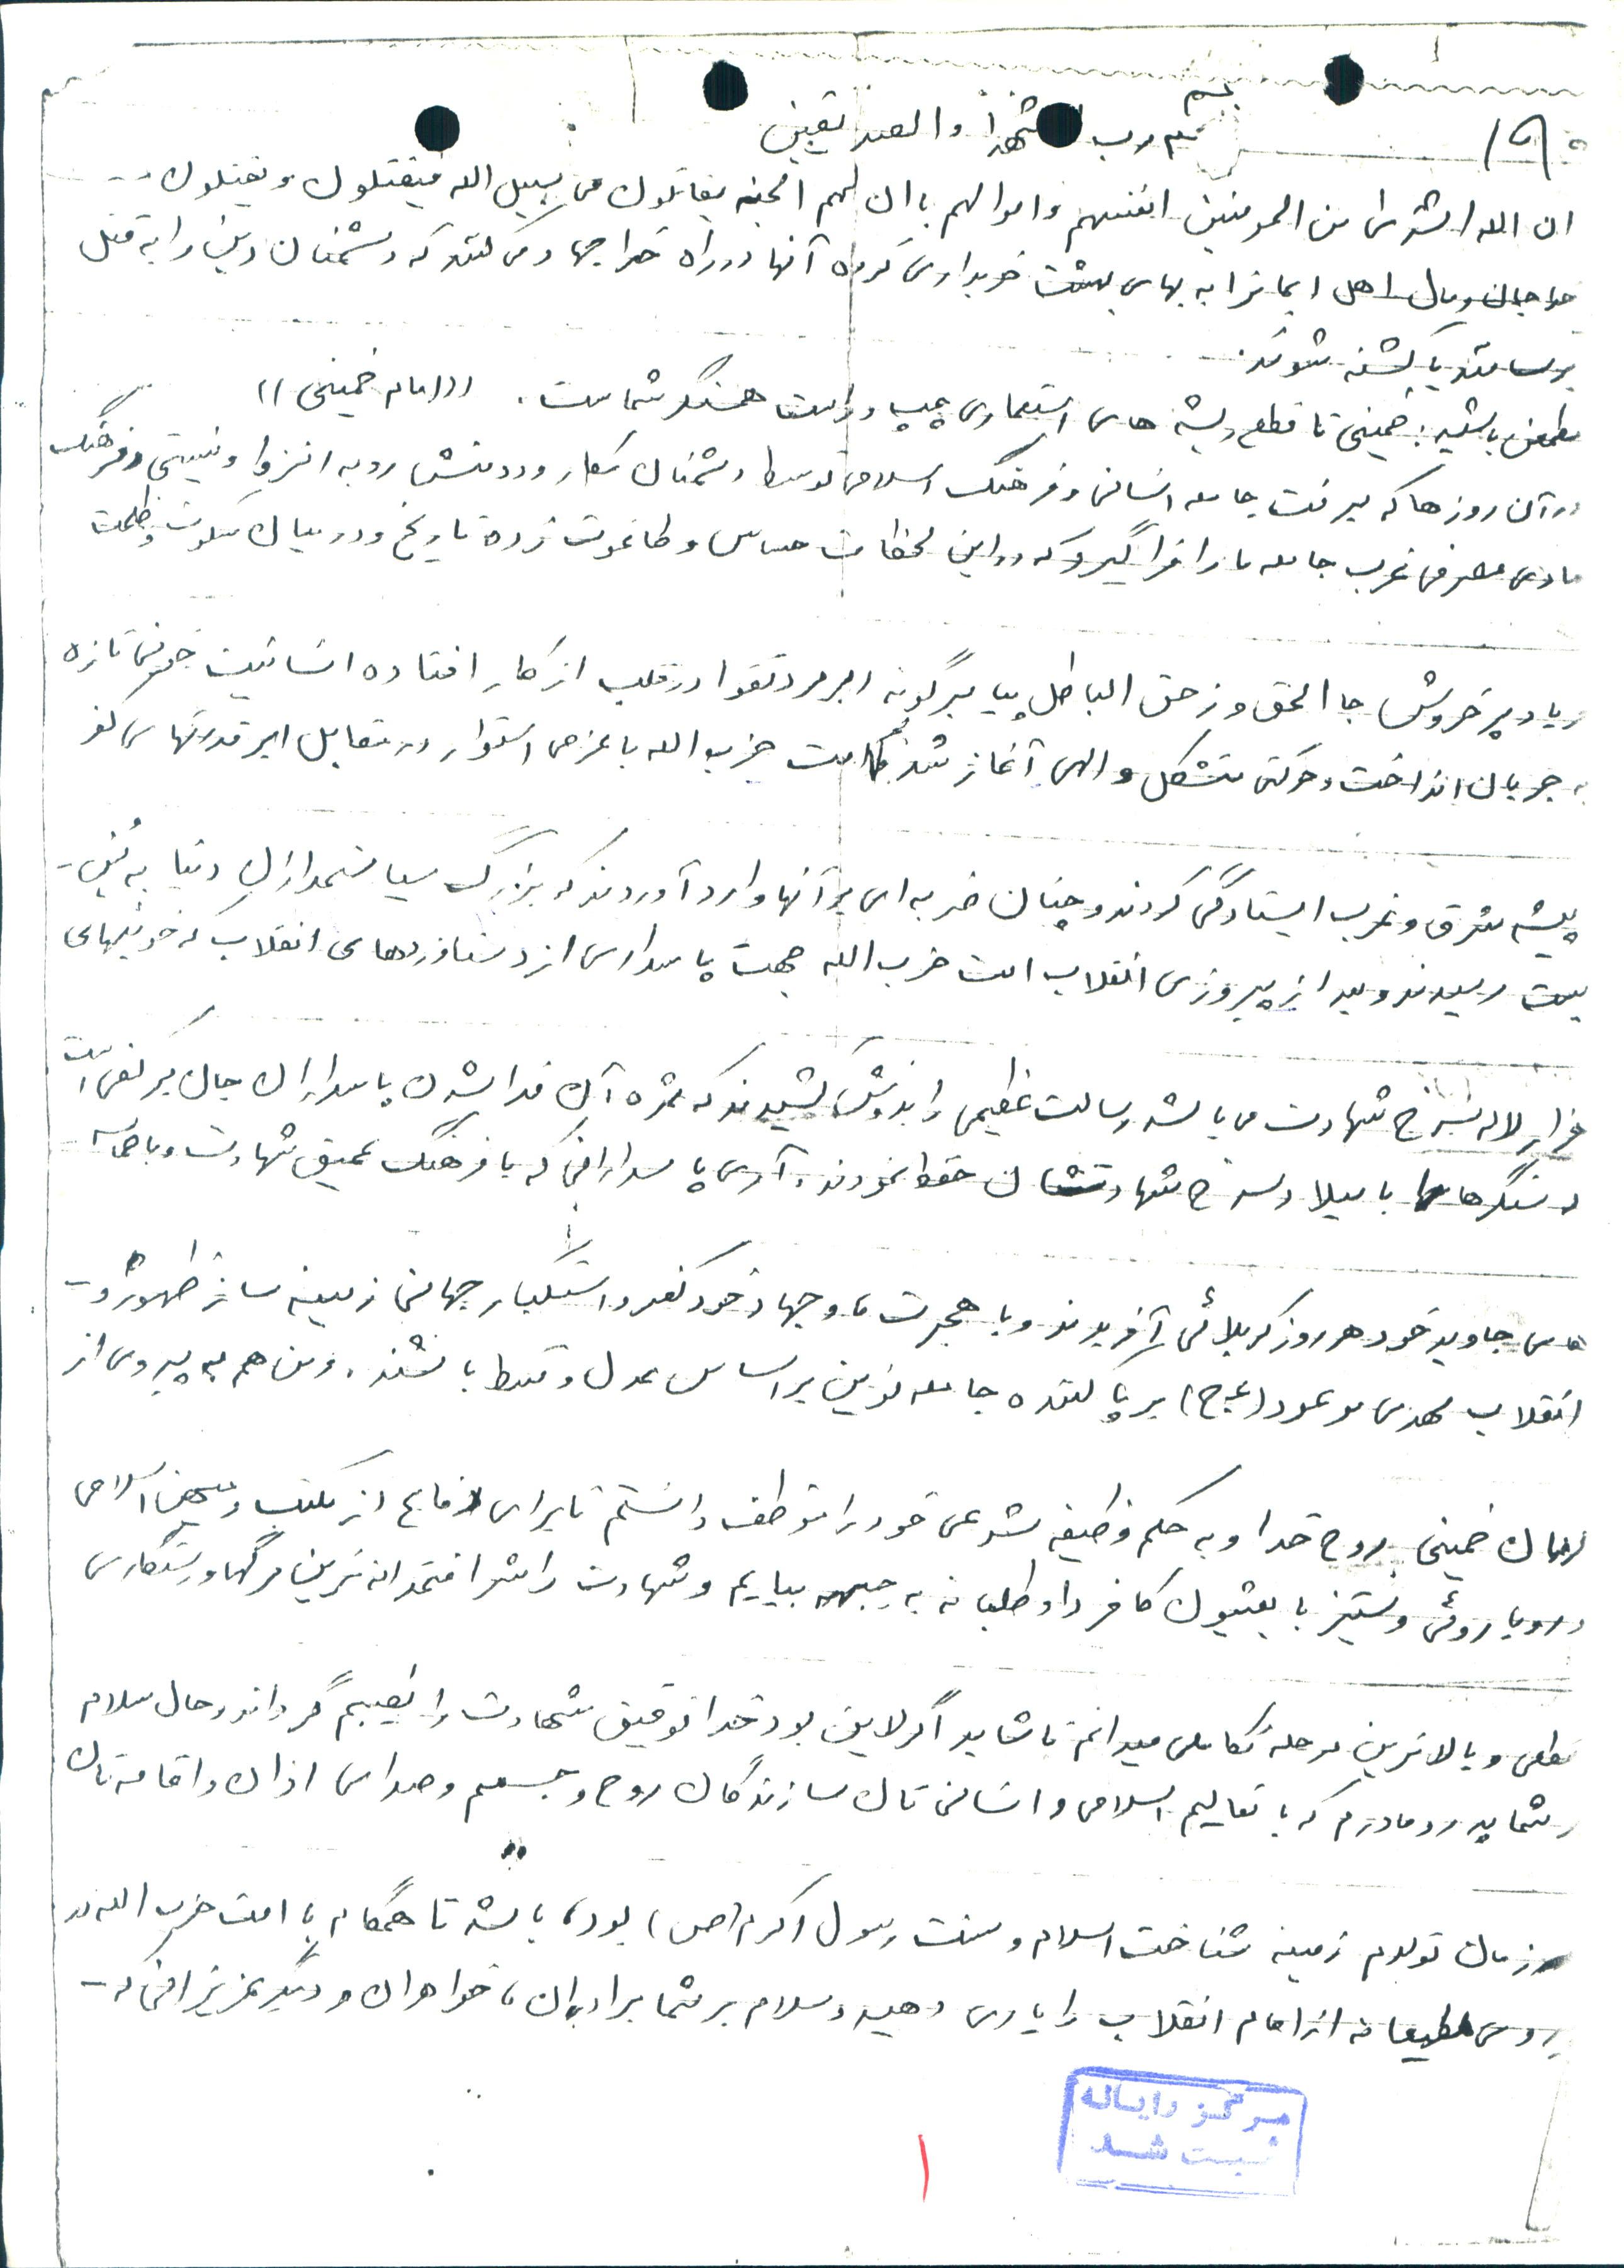 بسم رب الشهدا والصدیقین
ان الله اشتری من المومنین انفسهم و اموالهم بان لهم الجنه یقاتلون فی سبیل الله فیقتلون و یقتلون
خدا جان و مال اهل ایمانرا به بهای بهشت خریداری کرده آنها در راه خدا جهاد می کنند که دشمنان دین را به قتل
برسانند یا کشته شوند.
مطمئن باشید: خمینی تا قطع ریشه های استعماری چپ و راست همسنگر شماست. ((امام خمینی))
در آن روزها که میرفت جامعه انسانی و فرهنگ اسلامی توسط دشمنان مکار و ددمنش رو به انزوا و نیستی و فرهنگ
مادی مصرفی غرب جامعه ما را فراگیرد که در این لحظات حساس و طاغوت زده تاریخ و در میان سکوت و ظلمت
فریاد پرخروش جا الحق و زهق الباطل پیامبرگونه ابرمرد تقوا در قلب از کار افتاده انسانیت خونی تازه
به جریان انداخت و حرکتی متشکل و الهی آغاز شد امت حزب الله با عزمی استوار در مقابل ابرقدرتهای کفر
پیشه شرق و غرب ایستادگی کردند و چنان ضربه ای بر آنها وارد آوردند که بزرگ سیاستمداران دنیا به بُن-
بست رسیدند و بعد از پیروزی انقلاب امت حزب الله جهت پاسداری از دستاوردهای انقلاب که خونبهای
هزار لاله سرخ شهادت می باشد رسالت عظیمی را بدوش کشیدند که ثمره آن فدا شدن پاسداران جان بر کف است
که سنگرها را با میلاد سرخ شهادتشان حفظ نمودند. آری پاسدارانی که با فرهنگ عمیق شهادت و با حماسه
های جاوید خود هر روز کربلائی آفریدند و با هجرت ها و جهاد خود کفر و استکبار جهانی زمینه ساز ظهور و-
انقلاب مهدی موعود (عج) بر پا کننده جامعه نوین بر اساس عدل و قسط باشند. و من هم به پیروی از
فرمان خمینی روح خدا و به حکم وظیفه شرعی خود را موظف دانستم تا برای دفاع از مکتب و میهن اسلامی
در رویاروئی و ستیز با بعثیون کافر داوطلبانه به جبهه بیایم و شهادت را شرافتمندانه ترین مرگها و رستگاری
مطلق و بالاترین مرحله تکاملی میدانم تا شاید اگر لایق بود خدا توفیق شهادت را نصیبم گرداند و حال سلام
بر شما پدر و مادرم که با تعالیم اسلامی و انسانی تان سازندگان روح و جسمم و صدای اذان و اقامه تان
در زمان تولدم زمینه شناخت اسلام و سنت رسول اکرم (ص) بود، باشد تا همگام با امت حزب الله در
پیروی مطیعانه از امام انقلاب را یاری دهید و سلام بر شما برادران، خواهران و دیگر عزیزانی که -
مرکز رایانه
ثبت شد
۱